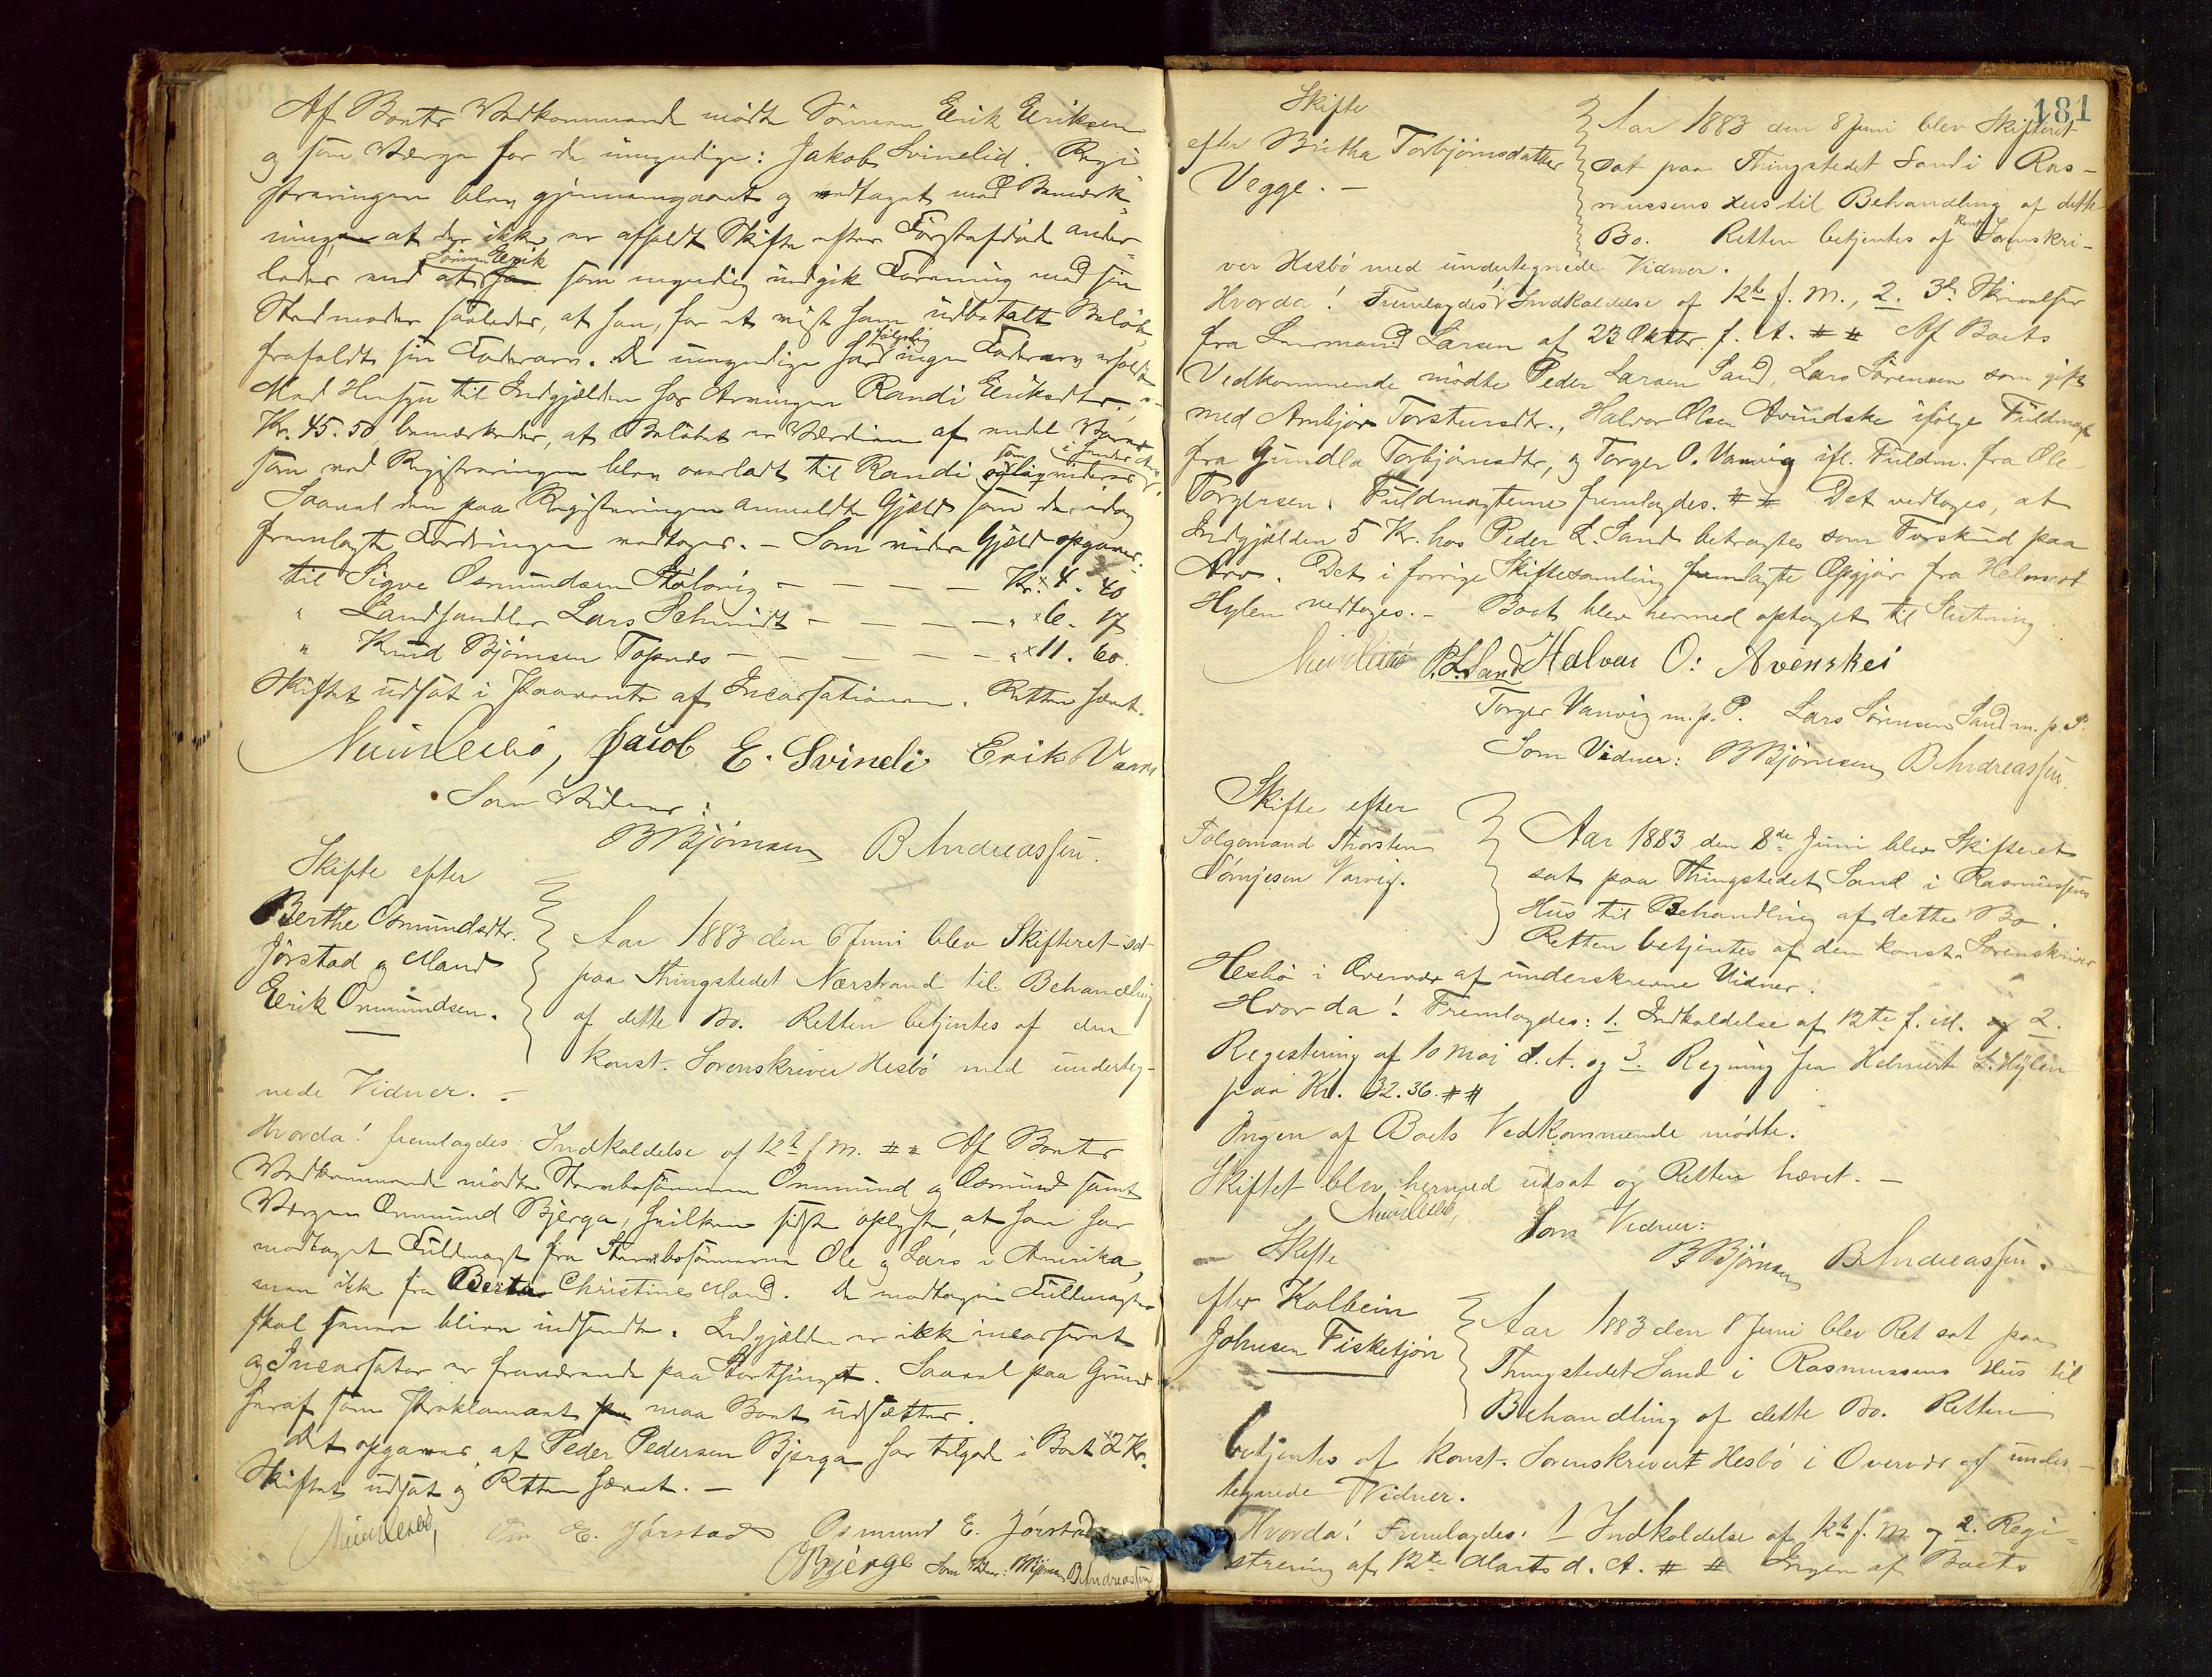 Af Boets Vedkommende mødte Sønnen Erik Eriksen
og som Værge for de umyndige: Jakob Svinelid. Regi
streringen blev gjennemgaaet og vedtaget med Bemærk-
ning at der ikke er afholdt Skifte efter Førstafdød ander-
ledes end at Sønnen Erik som myndig indgik Forening med sin
Stedmoder saaledes, at han, for et vist ham udbetalt Beløb,
frafaldt sin Fadersarv. De umyndige har følgelig ingen Fadersarv erholdt.
Med Hensyn til Indgjælden hos Arvingen Randi Eriksdtr.
Kr. 45.50 bemærkedes, at Beløbet er Værdien af endel
som ved Registreringen blev overladt til Randi
Saavel den paa Registreringen anmeldte Gjæld som de idag
fremlagte Fordringer vedtoges. – Som videre Gjæld opgaves:
til Sigve Osmundsen Stølsvig – – – – Kr. x 4. 40
" Landhandler Lars Schmidt – – – – – " x 6. 17
" Knud Bjørnsen Topnes – – – – – – " x 11. 60.
Skiftet udsat i Paavente af Incassationen. Retten hævet.
Jacob E. Svineli Erik
Som Vidner:
B Bjørnsen B Andreassen.
Skifte efter
Berthe Osmundsdtr.
Jørstad og Mand
Eerik Onmundsen.
Aar 1883 den 6 Juni blev Skifteret sat
paa Thingstedet Nærstrand til Behandling
af dette Bo. Retten betjentes af den
konst. Sorenskriver Hesbø med underteg-
nede Vidner. –
Hvorda! fremlagdes: Indkaldelse af 12te f. M. # # Af Boets
Vedkommende mødte Stervbosønnerne Onmund og Osmund samt
Værgen Onmund Bjerga, hvilken sidste oplyste, at han har
modtaget Fuldmagt fra Stervbosønnerne Ole og Lars i Amerika,
men ikke fra Berta Christines Mand. De modtagne Fuldmagter
skal senere blive indsendte. Indgjælden er ikke incasseret
og Incassator er fraværende paa Storthinget. Saavel paa Grund
heraf som Proklamaet maa Boet udsættes.
Det opgaves, at Peder Pedersen Bjerga har tilgode i Boet x 2 Kr.
Skiftet udsat og Retten hævet. –
E. Jørstad Osmund E. Jørstad
Bjerge Som Vidner: B Bjørnsen B Andreassen
181
Skifte
efter Britha Torbjørnsdatter
Vegge. –
Aar 1883 den 8 Juni blev Skifteret
sat paa Thingstedet Sand i Ras-
mussens Hus til Behandling af dette
Bo. Retten betjentes af konst. Sorenskri-
ver Hesbø med undertegnede Vidner.
Hvorda! Fremlagdes Indkaldelse af 12te f. M., 2. 3de Skrivelse
fra Lensmand Larsen af 23 Oktbr. f. A. # # Af Boets
Vedkommende mødte Peder Larsen Sand, Lars Sørensen som gift
med Anbjør Torstensdtr., Halvor Olsen Avindske ifølge Fuldmagt
fra Gundla Torbjørnsdtr, og Torger O. Vanvig ifl. Fuldm. fra Ole
Torgersen. Fuldmagterne fremlagdes. # # Det vedtoges, at
Indgjælden 5 Kr. hos Peder L. Sand betragtes som Forskud paa
Arv. Det i forrige Skiftesamling fremlagte Opgjør fra Helmert
Hylen vedtoges. – Boet blev hermed optaget til Slutning.
P. L. Sand Halvar O: Avenskei
Torger Vanvig m. p. P. Lars Sørensen Sand m. p. P.
Som Vidner: B Bjørnsen B Andreassen.
Skifte efter
Folgemand Thorsten
Tønjesen Vanvig.
Aar 1883 den 8de Juni blev Skifteret
sat paa Thingstedet Sand i Rasmussens
Hus til Behandling af dette Bo.
Retten betjentes af den konst. Sorenskriver
Hesbø i Overvær af underskrevne Vidner.
Hvorda! Fremlagdes: 1. Indkaldelse af 12te f. M. og 2.
Registering af 10 Maj d. A. og 3. Regning fra Helmert L. Hylen
paa Kr. 32.36. # #
Ingen af Boets Vedkommende mødte.
Skiftet blev hermed udsat og Retten hævet. –
Som Vidner:
B Bjørnsen B Andreassen.
Skifte
efter Kolbein
Johnsen Fisketjøn
Aar 1883 den 8 Juni blev Ret sat paa
Thingstedet Sand i Rasmussens Hus til
Behandling af dette Bo. Retten
betjentes af konst. Sorenskriver Hesbø i Overvær af under-
tegnede Vidner.
Hvorda! Fremlagdes: 1 Indkaldelse af 12te f. M. og 2. Regi-
strering af 12te Marts d. A. # # Ingen af Boets